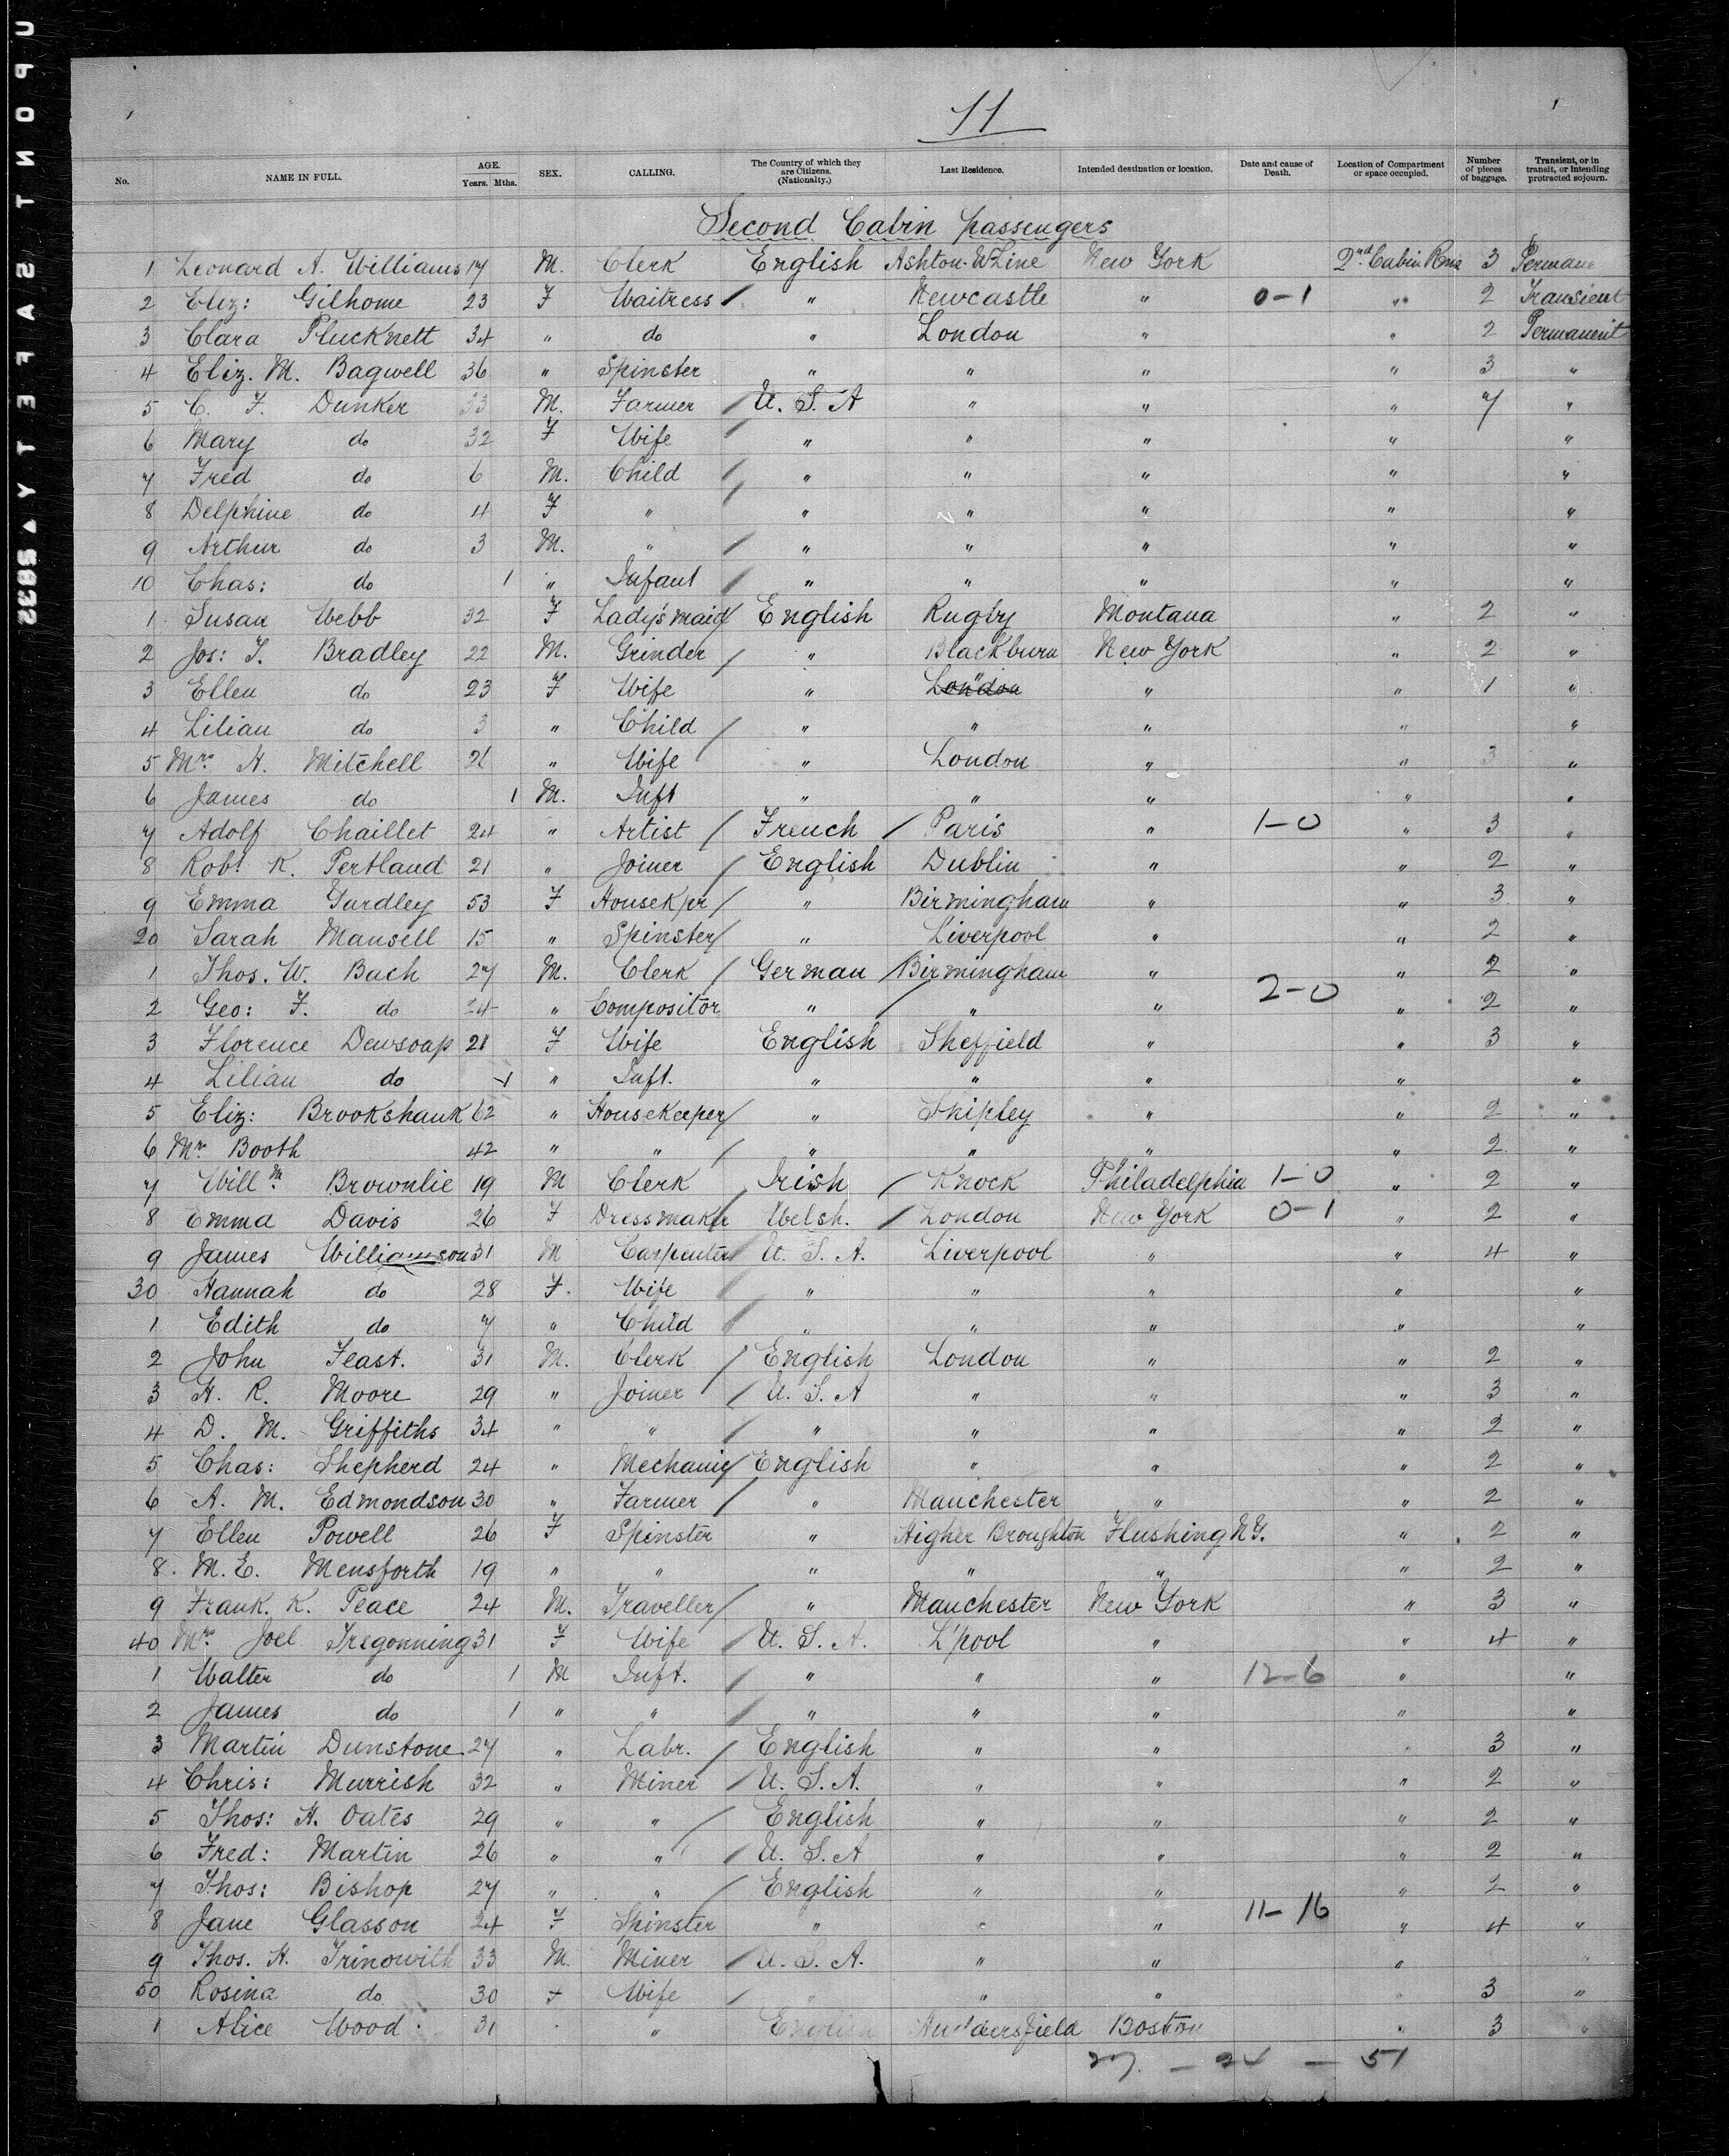 11
No. NAME IN FULL. AGE. Years. Mths. SEX. CALLING. The Country of which they are Citizens. (Nationality.) Last Residence. Intended destination or location. Date and cause of Death. Location of Compartment or space occupied. Number of pieces of baggage. Transient, or in transit, or intending protracted sojourn.
Second Cabin passengers
1 Leonard A. Williams 17 M. Clerk English Ashton-U-Line New York 2nd Cabin 3
2 Eliz: Gilhome 23 F Waitress / " Newcastle " 0-1 " 2 Transient
3 Clara Plucknett 34 " do " London " " 2 Permanent
4 Eliz. M. Bagwell 36 " Spinster " " " " 3 "
5 C. F. Dunker 33 M. Farmer / U. S. A " " " 7 "
6 Mary do 32 F Wife / " " " " "
7 Fred do 6 M. Child / " " " " "
8 Delphine do 4 F " / " " " " "
9 Arthur do 3 M. " / " " " " "
10 Chas: do 1 " Infant / " " " " "
1 Susan Webb 32 F Lady's maid / English Rugby Montana " 2 "
2 Jos: T. Bradley 22 M. Grinder / " Blackburn New York " 2 "
3 Ellen do 23 F Wife " London " " 1 "
4 Lilian do 3 " Child / " " " " "
5 Mrs H. Mitchell 21 " Wife " London " " 3 "
6 James do 1 M. Inft " " " " "
7 Adolf Chaillet 24 " Artist / French / Paris " 1-0 " 3 "
8 Robt K. Pertland 21 " Joiner / English Dublin " " 2 "
9 Emma Yardley 53 F Housekpr / " Birmingham " " 3 "
20 Sarah Mansell 15 " Spinster / " Liverpool " " 2 "
1 Thos. W. Bach 27 M. Clerk / German / Birmingham " " 2 "
2-0
2 Geo: F. do 24 " Compositor " / " " " 2 "
3 Florence Dewsoap 21 F Wife English Sheffield " " 3 "
4 Lilian do 1 " Inft. " " " " "
5 Eliz: Brookshank 62 " Housekeeper / " Shipley " " 2 "
6 Mrs Booth 42 " " / " " " " 2 "
7 Willm Brownlie 19 M Clerk Irish / Knock Philadelphia 1-0 " 2 "
8 Emma Davis 26 F Dressmaker Welsh. / London New York 0-1 " 2 "
9 James Williamson 31 M Carpenter / U. S. A. Liverpool " " 4 "
30 Hannah do 28 F. Wife / " " " " "
1 Edith do 7 " Child / " " " " "
2 John Feast. 31 M. Clerk / English London " " 2 "
3 H. R. Moore 29 " Joiner / U. S. A " " " 3 "
4 D. M. Griffiths 34 " " / " " " " 2 "
5 Chas: Shepherd 24 " Mechanic / English " " " 2 "
6 A. M. Edmondson 30 " Farmer / " Manchester " " 2 "
7 Ellen Powell 26 F Spinster " Higher Broughton Flushing N.Y. " 2 "
8. M. E. Mensforth 19 " " " " " " 2 "
9 Frank. K. Peace 24 M. Traveller / " Manchester New York " 3 "
40 Mrs Joel Tregonning 31 F Wife / U. S. A. L'pool " " 4 "
1 Walter do 1 M Inft. / " " " 12-6 " "
2 James do 1 " " / " " " " "
3 Martin Dunstone 27 " Labr. / English " " " 3 "
4 Chris: Murrish 32 " Miner / U. S. A. " " " 2 "
5 Thos: H. Oates 29 " " / English " " " 2 "
6 Fred: Martin 26 " " / U. S. A " " " 2 "
7 Thos: Bishop 27 " " / English " " " 2 "
8 Jane Glasson 24 F Spinster " " " 11-16 " 4 "
9 Thos. H. Trinowith 33 M. Miner / U. S. A. " " "
50 Rosina do 30 F Wife / " " " " 3 "
1 Alice Wood 31 " " English Huddersfield Boston " 3 "
27 - 24 - 51
UPON TSAFETY